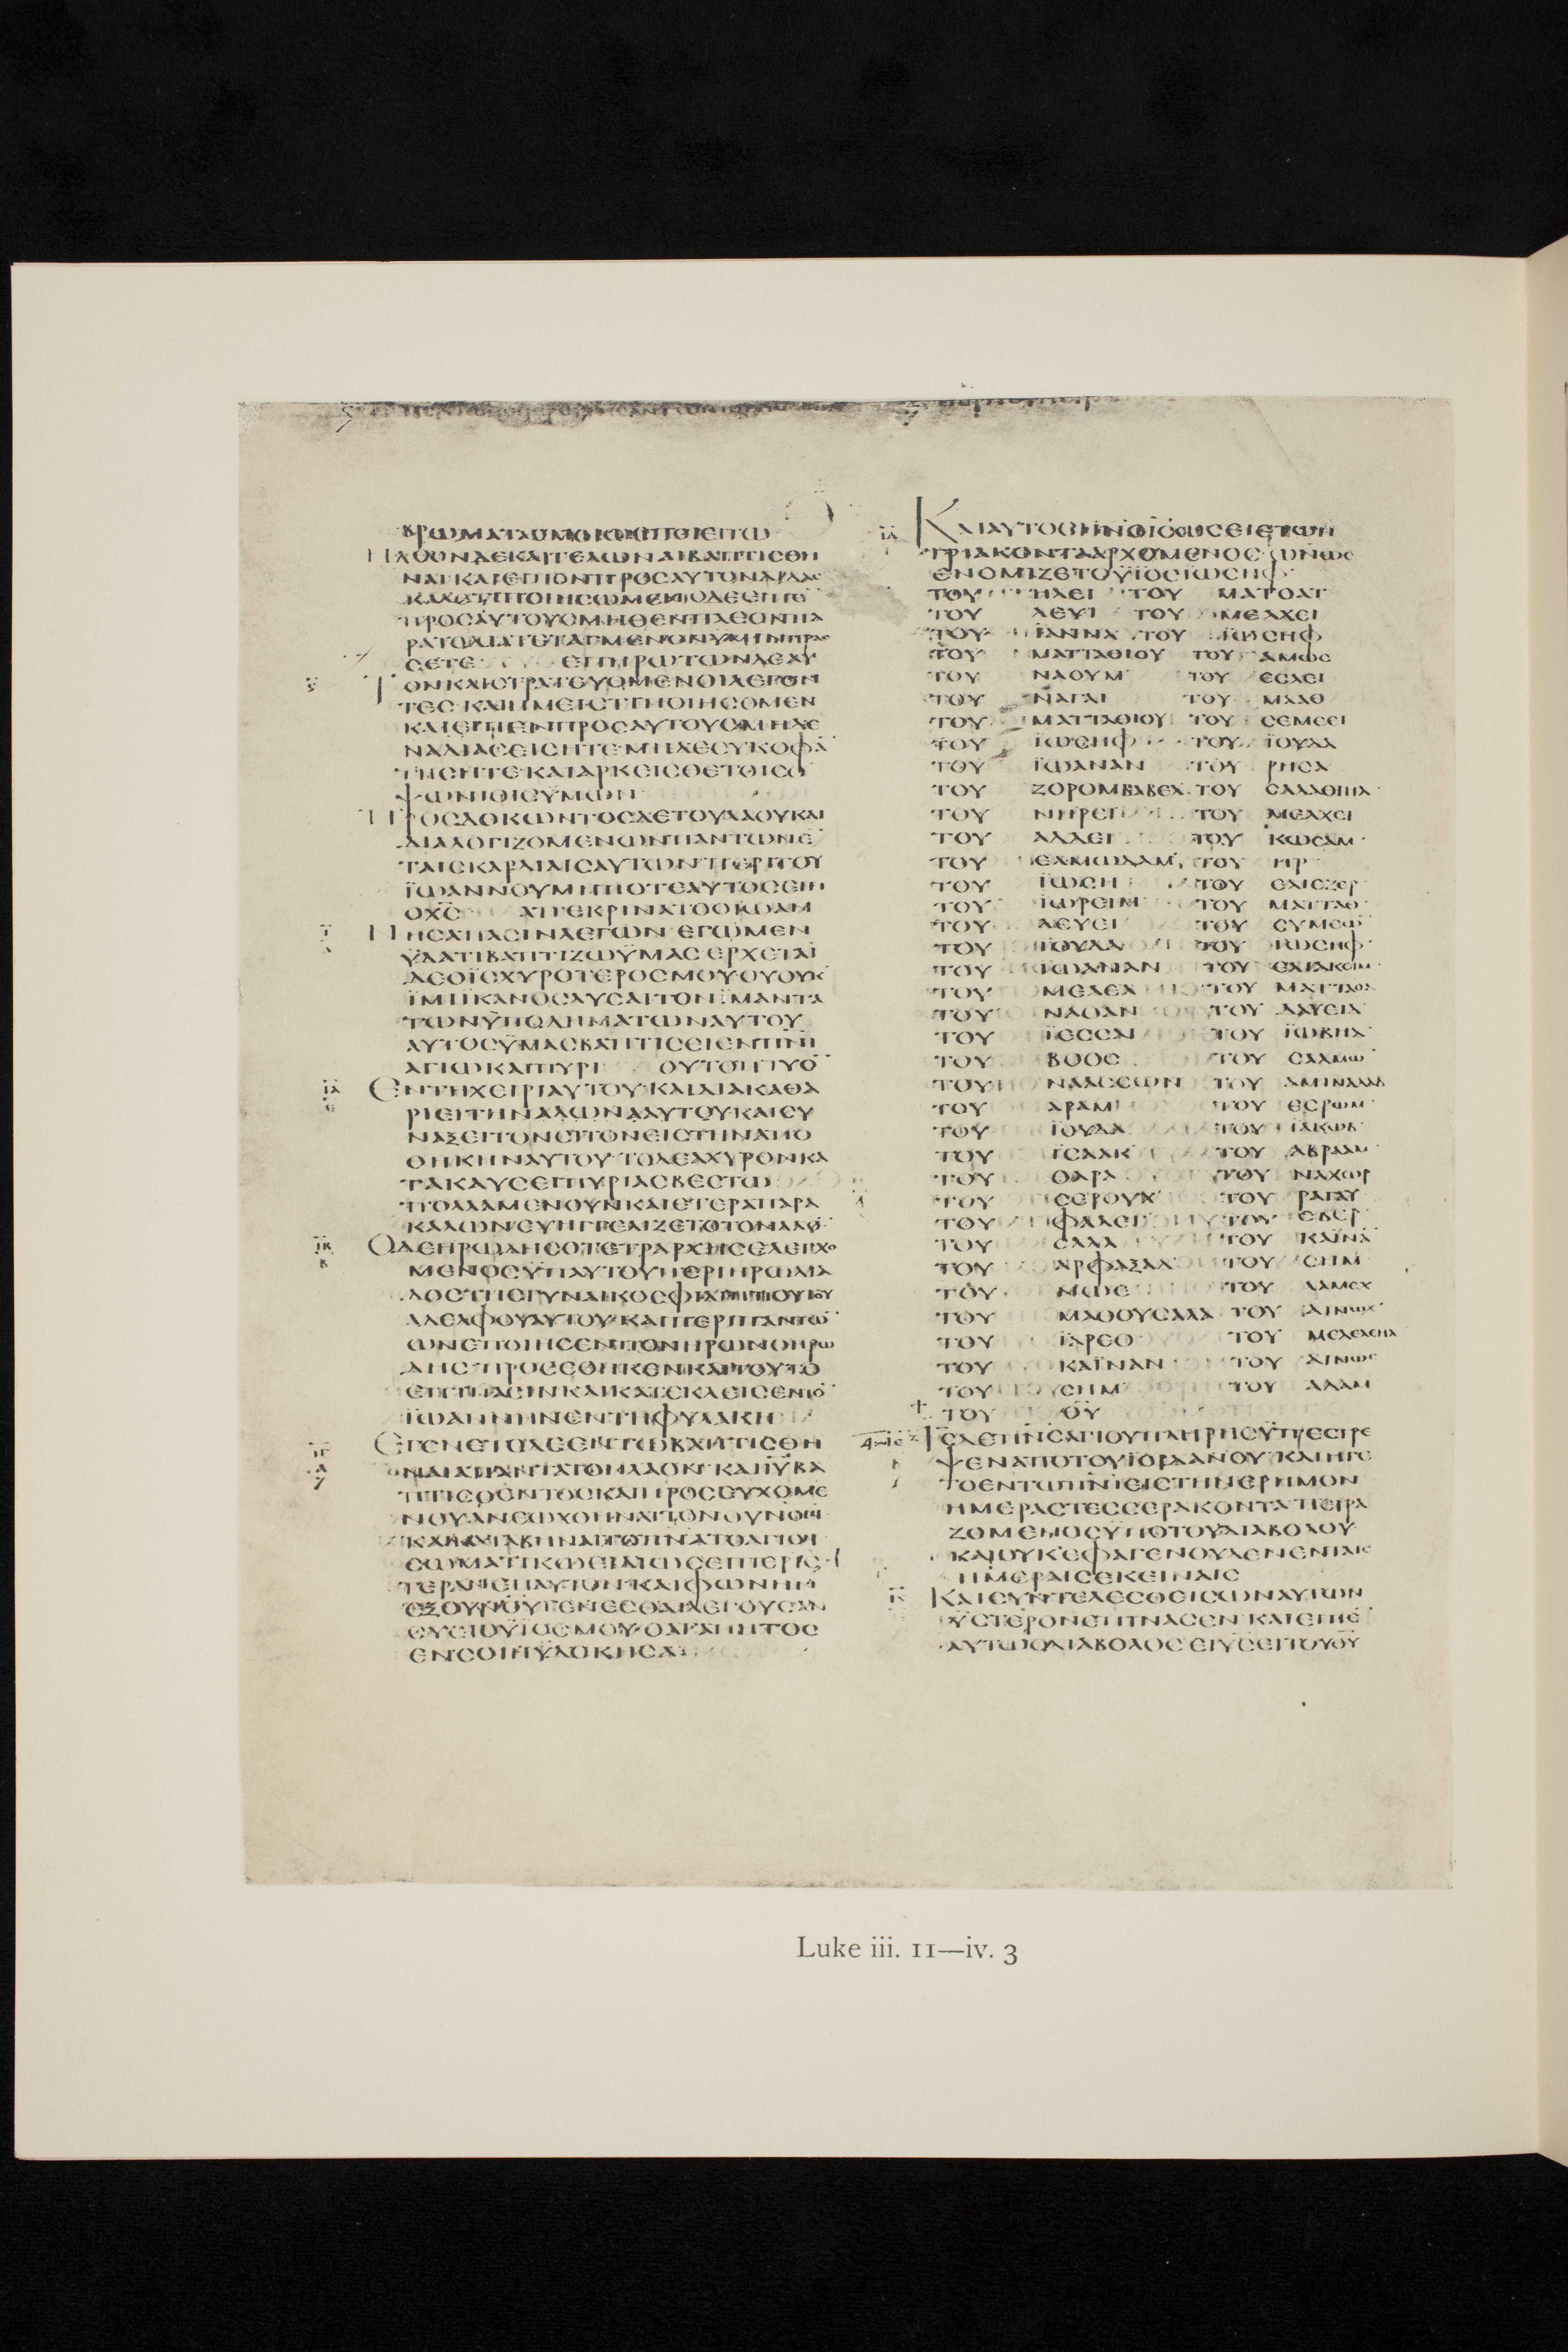 ΒΡΩΜΑΤΑΟΜΟΙΩΣΠΟΙΕΙΤΩ
ΗΛΘΟΝΔΕΚΑΙΤΕΛΩΝΑΙΒΑΠΤΙΣΘΗ
ΝΑΙΚΑΙΕΙΠΟΝΠΡΟΣΑΥΤΟΝΔΙΔΑΣ
ΚΑΛΕΤΙΠΟΙΗΣΩΜΕΝΟΔΕΕΙΠΕ
ΠΡΟΣΑΥΤΟΥΣΜΗΘΕΝΠΛΕΟΝΠΑ
ΡΑΤΟΔΙΑΤΕΤΑΓΜΕΝΟΝΥΜΙΝΠΡΑΣ
ΣΕΤΕ ΕΠΗΡΩΤΩΝΔΕΑΥ
ΤΟΝΚΑΙΣΤΡΑΤΕΥΟΜΕΝΟΙΛΕΓΟΝ
ΤΕΣ ΚΑΙΗΜΕΙΣΤΙΠΟΙΗΣΟΜΕΝ
ΚΑΙΕΙΠΕΝΠΡΟΣΑΥΤΟΥΣΜΗΔΕ
ΝΑΔΙΑΣΕΙΣΗΤΕ ΜΗΔΕΣΥΚΟΦΑ̅
ΤΗΣΗΤΕΚΑΙΑΡΚΕΙΣΘΕΤΟΙΣΟ
ΨΩΝΙΟΙΣΫΜΩΝ
ΠΡΟΣΔΟΚΩΝΤΟΣΔΕΤΟΥΛΑΟΥΚΑΙ
ΔΙΑΛΟΓΙΖΟΜΕΝΩΝΠΑΝΤΩΝΕ̅
ΤΑΙΣΚΑΡΔΙΑΙΣΑΥΤΩΝΠΕΡΙΤΟΥ
ΪΩΑΝΝΟΥΜΗΠΟΤΕΑΥΤΟΣΕΙΗ
ΟΧ̅Σ̅ ΑΠΕΚΡΙΝΑΤΟΟΪΩΑΝ
ΝΗΣΑΠΑΣΙΝΛΕΓΩΝ ΕΓΩΜΕΝ
ΫΔΑΤΙΒΑΠΤΙΖΩΫΜΑΣ ΕΡΧΕΤΑΙ
ΔΕΟΪΣΧΥΡΟΤΕΡΟΣΜΟΥΟΥΟΥΚ
ΪΜΙΪΚΑΝΟΣΛΥΣΑΙΤΟΝΪΜΑΝΤΑ
ΤΩΝΫΠΟΔΗΜΑΤΩΝΑΥΤΟΥ
ΑΥΤΟΣΫΜΑΣΒΑΠΤΙΣΕΙΕΝΠ̅Ν̅Ι̅
ΑΓΙΩΚΑΙΠΥΡΙ ΟΥΤΟΠΤΥΟ̅
ΕΝΤΗΧΕΙΡΙΑΥΤΟΥ ΚΑΙΔΙΑΚΑΘΑ
ΡΙΕΙΤΗΝΑΛΩΝΑΑΥΤΟΥ ΚΑΙΣΥ
ΝΑΞΕΙΤΟΝΣΙΤΟΝΕΙΣΤΗΝΑΠΟ
ΘΗΚΗΝΑΥΤΟΥ ΤΟΔΕΑΧΥΡΟΝΚΑ
ΤΑΚΑΥΣΕΙΠΥΡΙΑΣΒΕΣΤΩ
ΠΟΛΛΑΜΕΝΟΥΝΚΑΙΕΤΕΡΑΠΑΡΑ
ΚΑΛΩΝΕΥΗΓΓΕΛΙΖΕΤΟΤΟΝΛΑΟ̅
ΟΔΕΗΡΩΔΗΣΟΤΕΤΡΑΡΧΗΣΕΛΕΓΧΟ
ΜΕΝΟΣΫΠΑΥΤΟΥΠΕΡΙΗΡΩΔΙΑ
ΔΟΣΤΗΣΓΥΝΑΙΚΟΣΦΙΛΙΠΠΟΥΤΟΥ
ΑΔΕΛΦΟΥΑΥΤΟΥ ΚΑΙΠΕΡΙΠΑΝΤΩ̅
ΩΝΕΠΟΙΗΣΕΝΠΟΝΗΡΩΝΟΗΡΩ
ΔΗΣ ΠΡΟΣΕΘΗΚΕΝΚΑΙΤΟΥΤΟ
ΕΠΙΠΑΣΙΝΚΑΙΚΑΤΕΚΛΕΙΣΕΝΤΟ̅
ΪΩΑΝΝΗΝΕΝΤΗΦΥΛΑΚΗ
ΕΓΕΝΕΤΟΔΕΕΝΤΩΒΑΠΤΙΣΘΗ
ΝΑΙΑΠΑΝΤΑΤΟΝΛΑΟΝ ΚΑΙΙ̅Υ̅ΒΑ
ΠΤΙΣΘΕΝΤΟΣΚΑΙΠΡΟΣΕΥΧΟΜΕ
ΝΟΥΑΝΕΩΧΘΗΝΑΙΤΟΝΟΥΝΟΝ
ΚΑΙΚΑΤΑΒΗΝΑΙΤΟΠ̅Ν̅Α̅ΤΟΑΓΙΟΝ
ΣΩΜΑΤΙΚΩΕΙΔΙΩΣΕΙΠΕΡΙΣ
ΤΕΡΑΝΕΠΑΥΤΟΝ ΚΑΙΦΩΝΗΝ
ΕΞΟΥΝΟΥΓΕΝΕΣΘΑΙΛΕΓΟΥΣΑΝ
ΣΥΕΙΟΫΙΟΣΜΟΥ ΟΑΓΑΠΗΤΟΣ
ΕΝΣΟΙΗΫΔΟΚΗΣΑ
ΚΑΙΑΥΤΟΣΗΝΟΙ̅Σ̅ΩΣΕΙΕΤΩΝ
ΤΡΙΑΚΟΝΤΑΑΡΧΟΜΕΝΟΣ ΩΝΩΣ
ΕΝΟΜΙΖΕΤΟΫΙΟΣΪΩΣΗΦ
ΤΟΥ ΗΛΕΙ ΤΟΥ ΜΑΤΘΑΤ
ΤΟΥ ΛΕΥΙ ΤΟΥ ΜΕΛΧΕΙ
ΤΟΥ ΪΑΝΝΑ ΤΟΥ ΪΩΣΗΦ
ΤΟΥ ΜΑΤΤΑΘΙΟΥ ΤΟΥ ΑΜΩΣ
ΤΟΥ ΝΑΟΥΜ ΤΟΥ ΕΣΛΕΙ
ΤΟΥ ΝΑΓΑΙ ΤΟΥ ΜΑΑΘ
ΤΟΥ ΜΑΤΤΑΘΙΟΥ ΤΟΥ ΣΕΜΕΕΙ
ΤΟΥ ΪΩΣΗΦ ΤΟΥ ΪΟΥΔΑ
ΤΟΥ ΪΩΑΝΑΝ ΤΟΥ ΡΗΣΑ
ΤΟΥ ΖΟΡΟΜΒΑΒΕΛ ΤΟΥ ΣΑΛΑΘΙΗΛ
ΤΟΥ ΝΗΡΕΙ ΤΟΥ ΜΕΛΧΕΙ
ΤΟΥ ΑΔΔΕΙ ΤΟΥ ΚΩΣΑΜ
ΤΟΥ ΕΛΜΩΔΑΜ ΤΟΥ ΗΡ
ΤΟΥ ΪΩΣΗ ΤΟΥ ΕΛΙΕΖΕΡ
ΤΟΥ ΪΩΡΕΙΜ ΤΟΥ ΜΑΤΤΑΘ
ΤΟΥ ΛΕΥΕΙ ΤΟΥ ΣΥΜΕΩ̅
ΤΟΥ ΪΟΥΔΑ ΤΟΥ ΪΩΣΗΦ
ΤΟΥ ΪΩΑΝΑΝ ΤΟΥ ΕΛΙΑΚΕΙΜ
ΤΟΥ ΜΕΛΕΑ ΤΟΥ ΜΑΤΤΑΘΑ
ΤΟΥ ΝΑΘΑΝ ΤΟΥ ΔΑΥΕΙΔ
ΤΟΥ ΪΕΣΣΑΙ ΤΟΥ ΪΩΒΗΔ
ΤΟΥ ΒΟΟΣ ΤΟΥ ΣΑΛΜΩ̅
ΤΟΥ ΝΑΑΣΣΩΝ ΤΟΥ ΑΜΙΝΑΔΑΒ
ΤΟΥ ΑΡΑΜ ΤΟΥ ΕΣΡΩΜ
ΤΟΥ ΪΟΥΔΑ ΤΟΥ ΪΑΚΩΒ
ΤΟΥ ΪΣΑΑΚ ΤΟΥ ΑΒΡΑΑΜ
ΤΟΥ ΘΑΡΑ ΤΟΥ ΝΑΧΩΡ
ΤΟΥ ΣΕΡΟΥΧ ΤΟΥ ΡΑΓΑΥ
ΤΟΥ ΦΑΛΕΓ ΤΟΥ ΕΒΕΡ
ΤΟΥ ΣΑΛΑ ΤΟΥ ΚΑΪΝΑ̅
ΤΟΥ ΑΡΦΑΞΑΔ ΤΟΥ ΣΗΜ
ΤΟΥ ΝΩΕ ΤΟΥ ΛΑΜΕΧ
ΤΟΥ ΜΑΘΟΥΣΑΛΑ ΤΟΥ ΑΙΝΩΧ
ΤΟΥ ΪΑΡΕΘ ΤΟΥ ΜΕΛΕΛΕΗΛ
ΤΟΥ ΚΑΪΝΑΝ ΤΟΥ ΑΙΝΩΣ
ΤΟΥ ΣΗΜ ΤΟΥ ΑΔΑΜ
ΤΟΥ Θ̅Υ̅
Ι̅Σ̅ΔΕΠ̅Ν̅Σ̅ΑΓΙΟΥΠΛΗΡΗΣΫΠΕΣΤΡΕ
ΨΕΝΑΠΟΤΟΥΪΟΡΔΑΝΟΥ ΚΑΙΗΓΕ
ΤΟΕΝΤΩΠ̅Ν̅Ι̅ΕΙΣΤΗΝΕΡΗΜΟΝ
ΗΜΕΡΑΣΤΕΣΣΕΡΑΚΟΝΤΑ ΠΕΙΡΑ
ΖΟΜΕΝΟΣΫΠΟΤΟΥΔΙΑΒΟΛΟΥ
ΚΑΙΟΥΚΕΦΑΓΕΝΟΥΔΕΝΕΝΤΑΙΣ
ΗΜΕΡΑΙΣΕΚΕΙΝΑΙΣ
ΚΑΙΣΥΝΤΕΛΕΣΘΕΙΣΩΝΑΥΤΩΝ
ΫΣΤΕΡΟΝΕΠΙΝΑΣΕΝ ΚΑΙΕΙΠΕ̅
ΑΥΤΩΟΔΙΑΒΟΛΟΣ ΕΙΫΣΕΙΤΟΥΘ̅Υ̅
Luke iii. 11—iv. 3